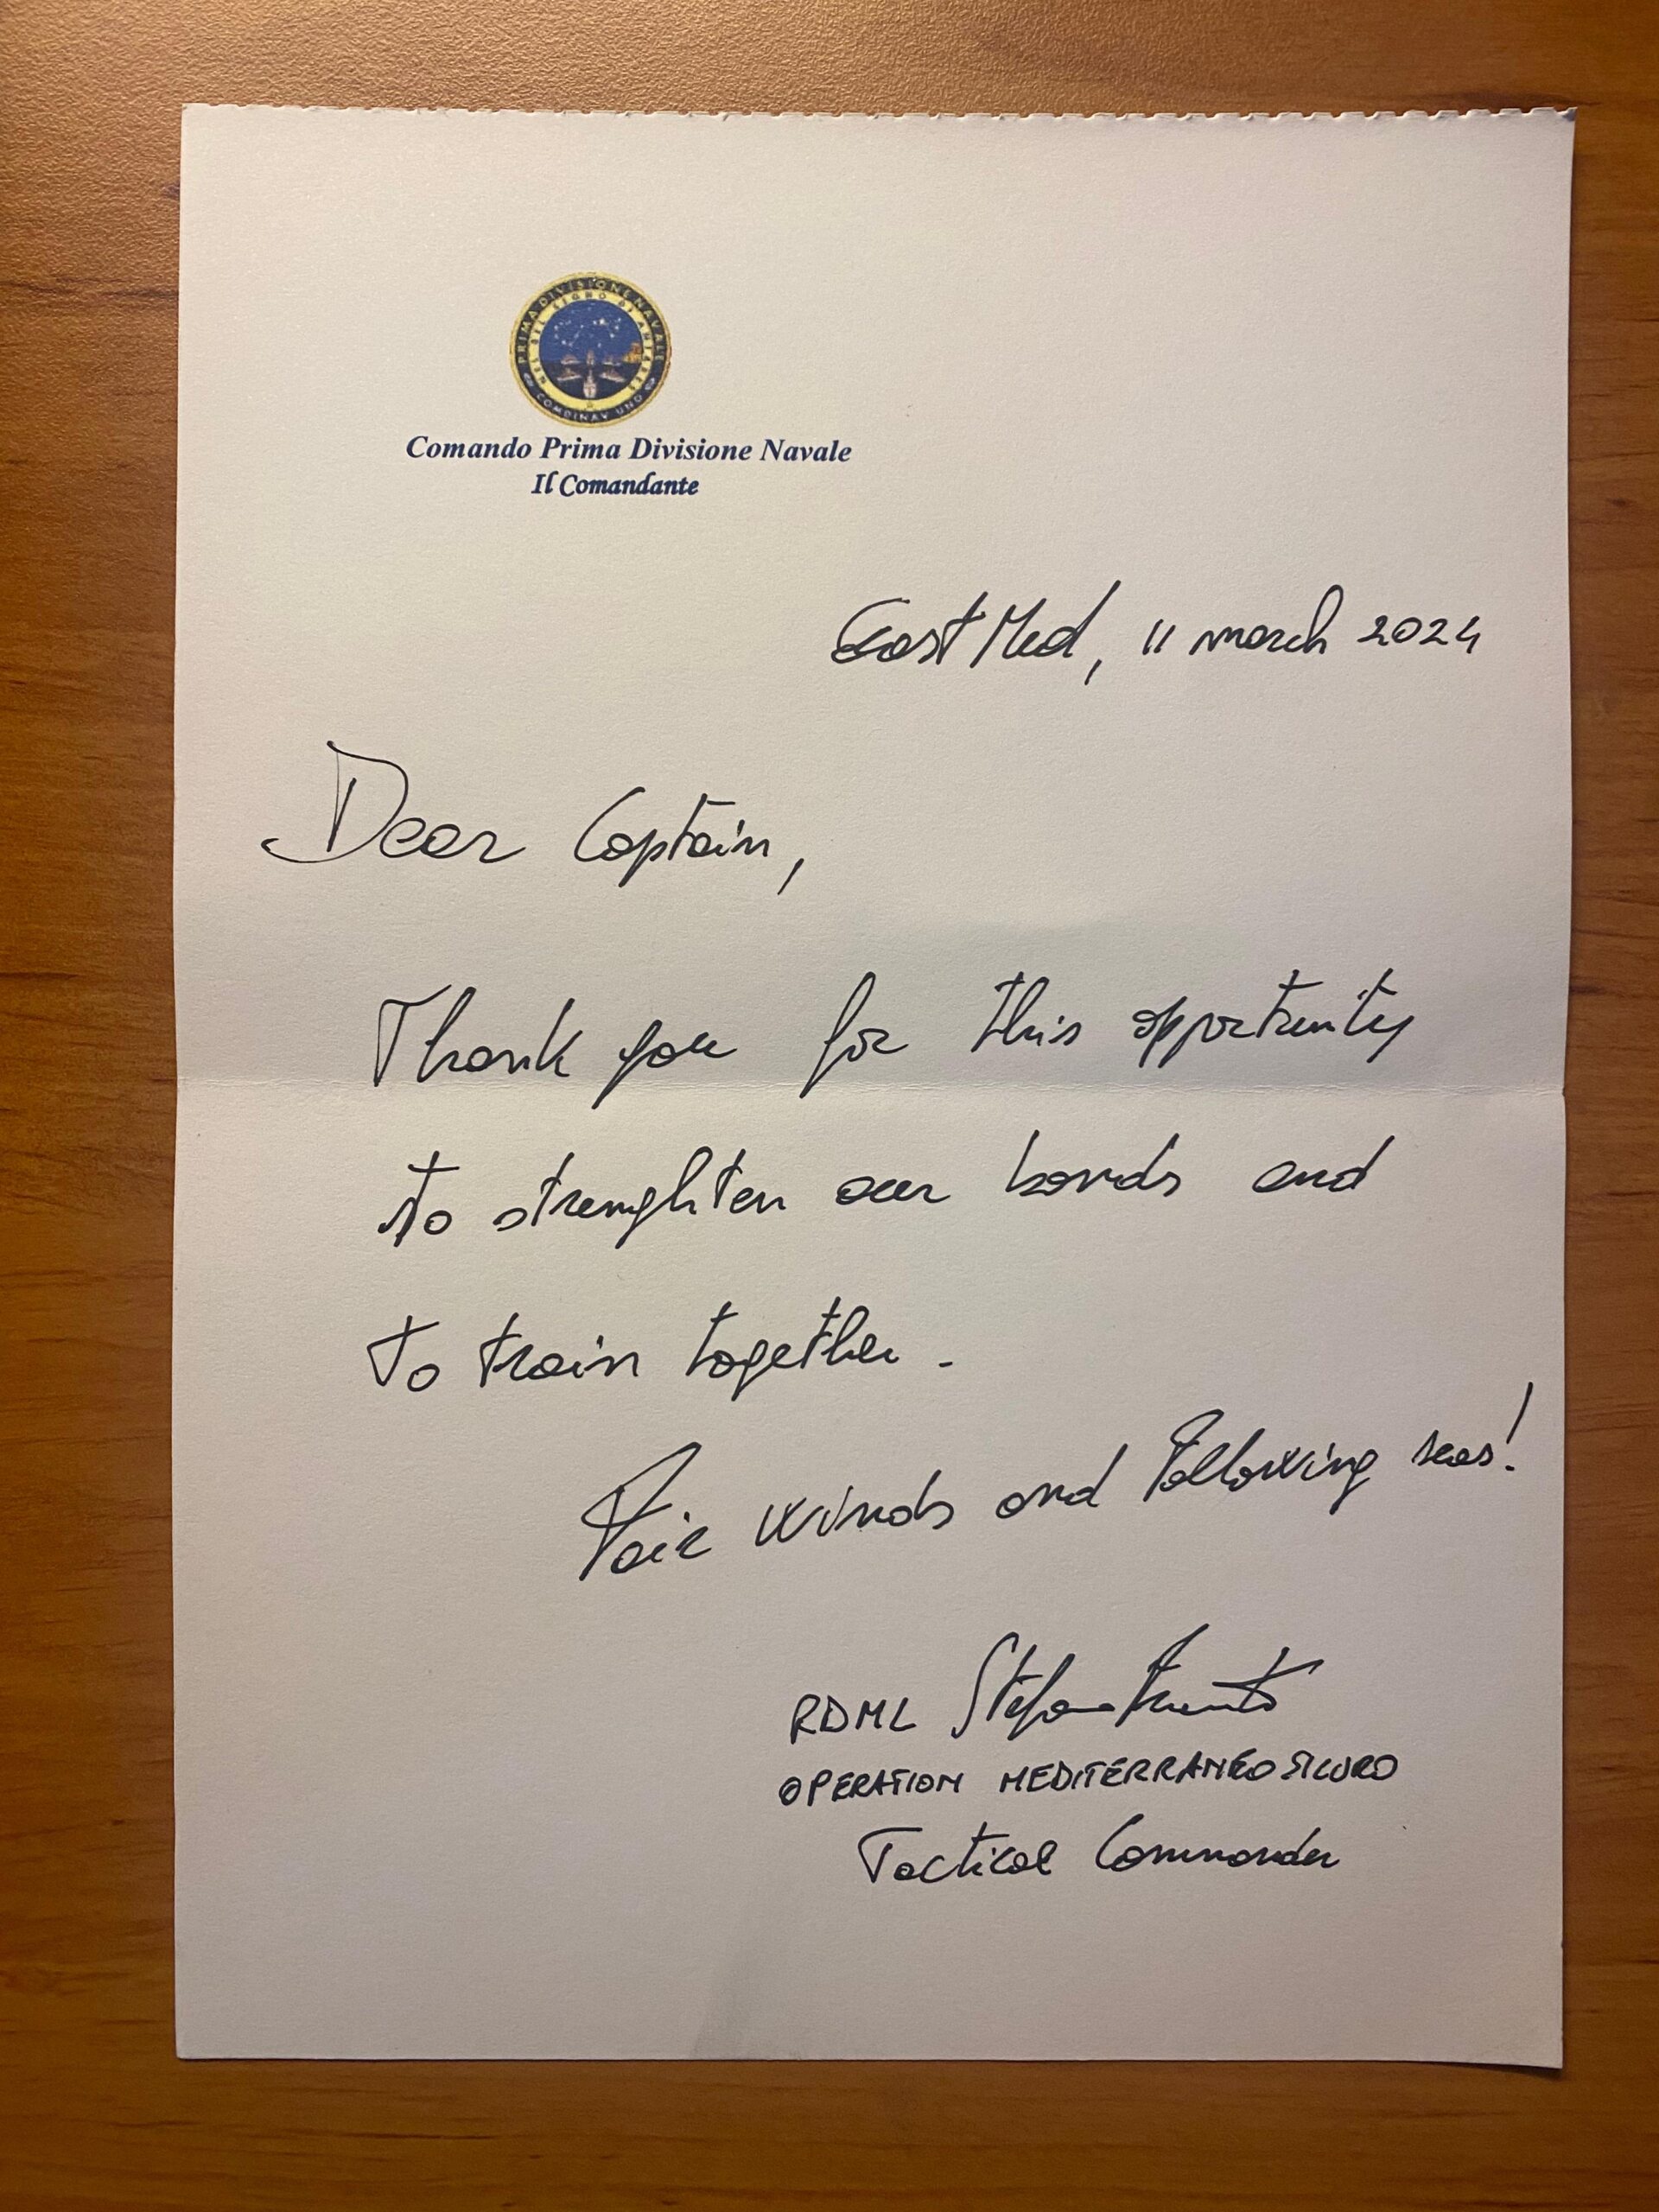 PRIMA DIVISIONE NAVALE
NEL SEL SEGNO DI
COMDINAV UNO
Comando Prima Divisione Navale
Il Comandante
East Med, 11 march 2024
Dear Captain,
Thank you for this opportunity
to strenghten our bonds and
to train together.
Fair winds and Following seas!
RDML Stefano
OPERATION MEDITERRANEO SICURO
Tactical Commander